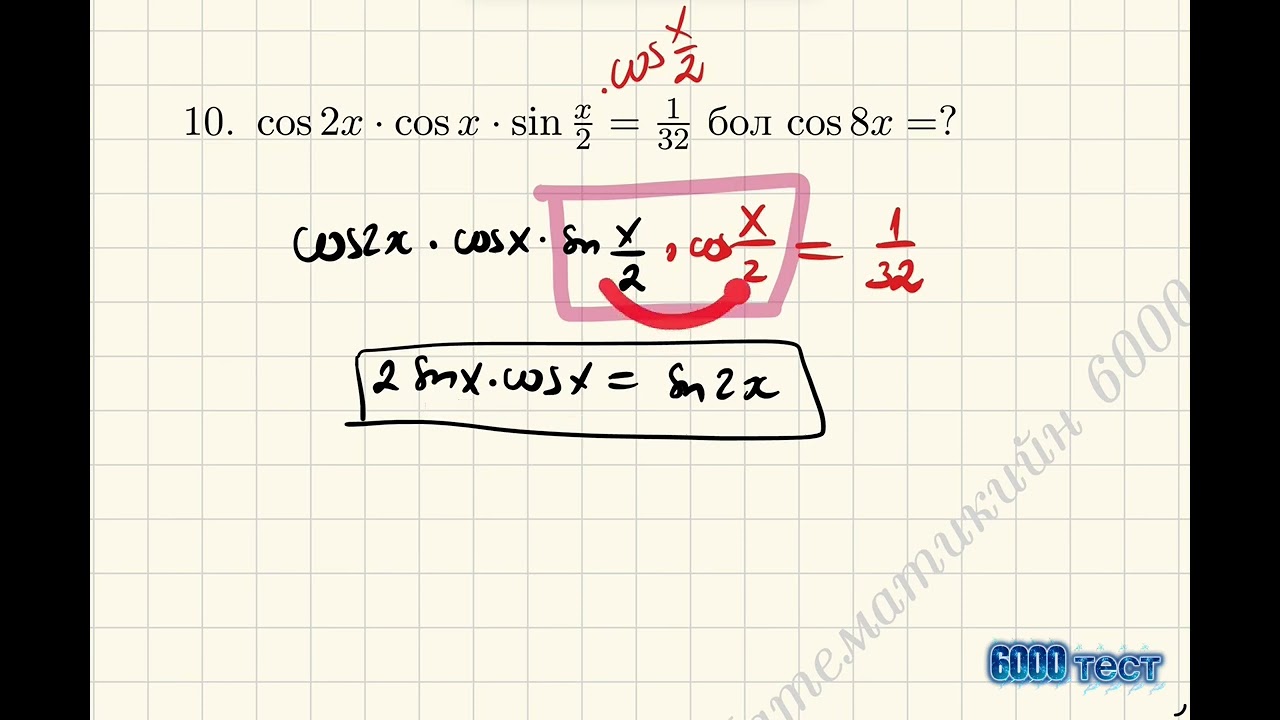 · cos x/2
10. cos 2x · cos x · sin x/2 = 1/32 бол cos 8x =?
cos2x · cosx · sin x/2 · cos x/2 = 1/32
2 sinx · cosx = sin2x
математикийн 6000
6000 тест